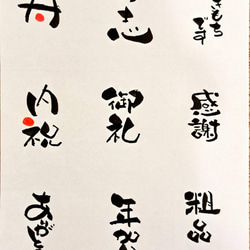 きもち
です
志
感謝
御礼
内祝
粗品
年賀
ありがと